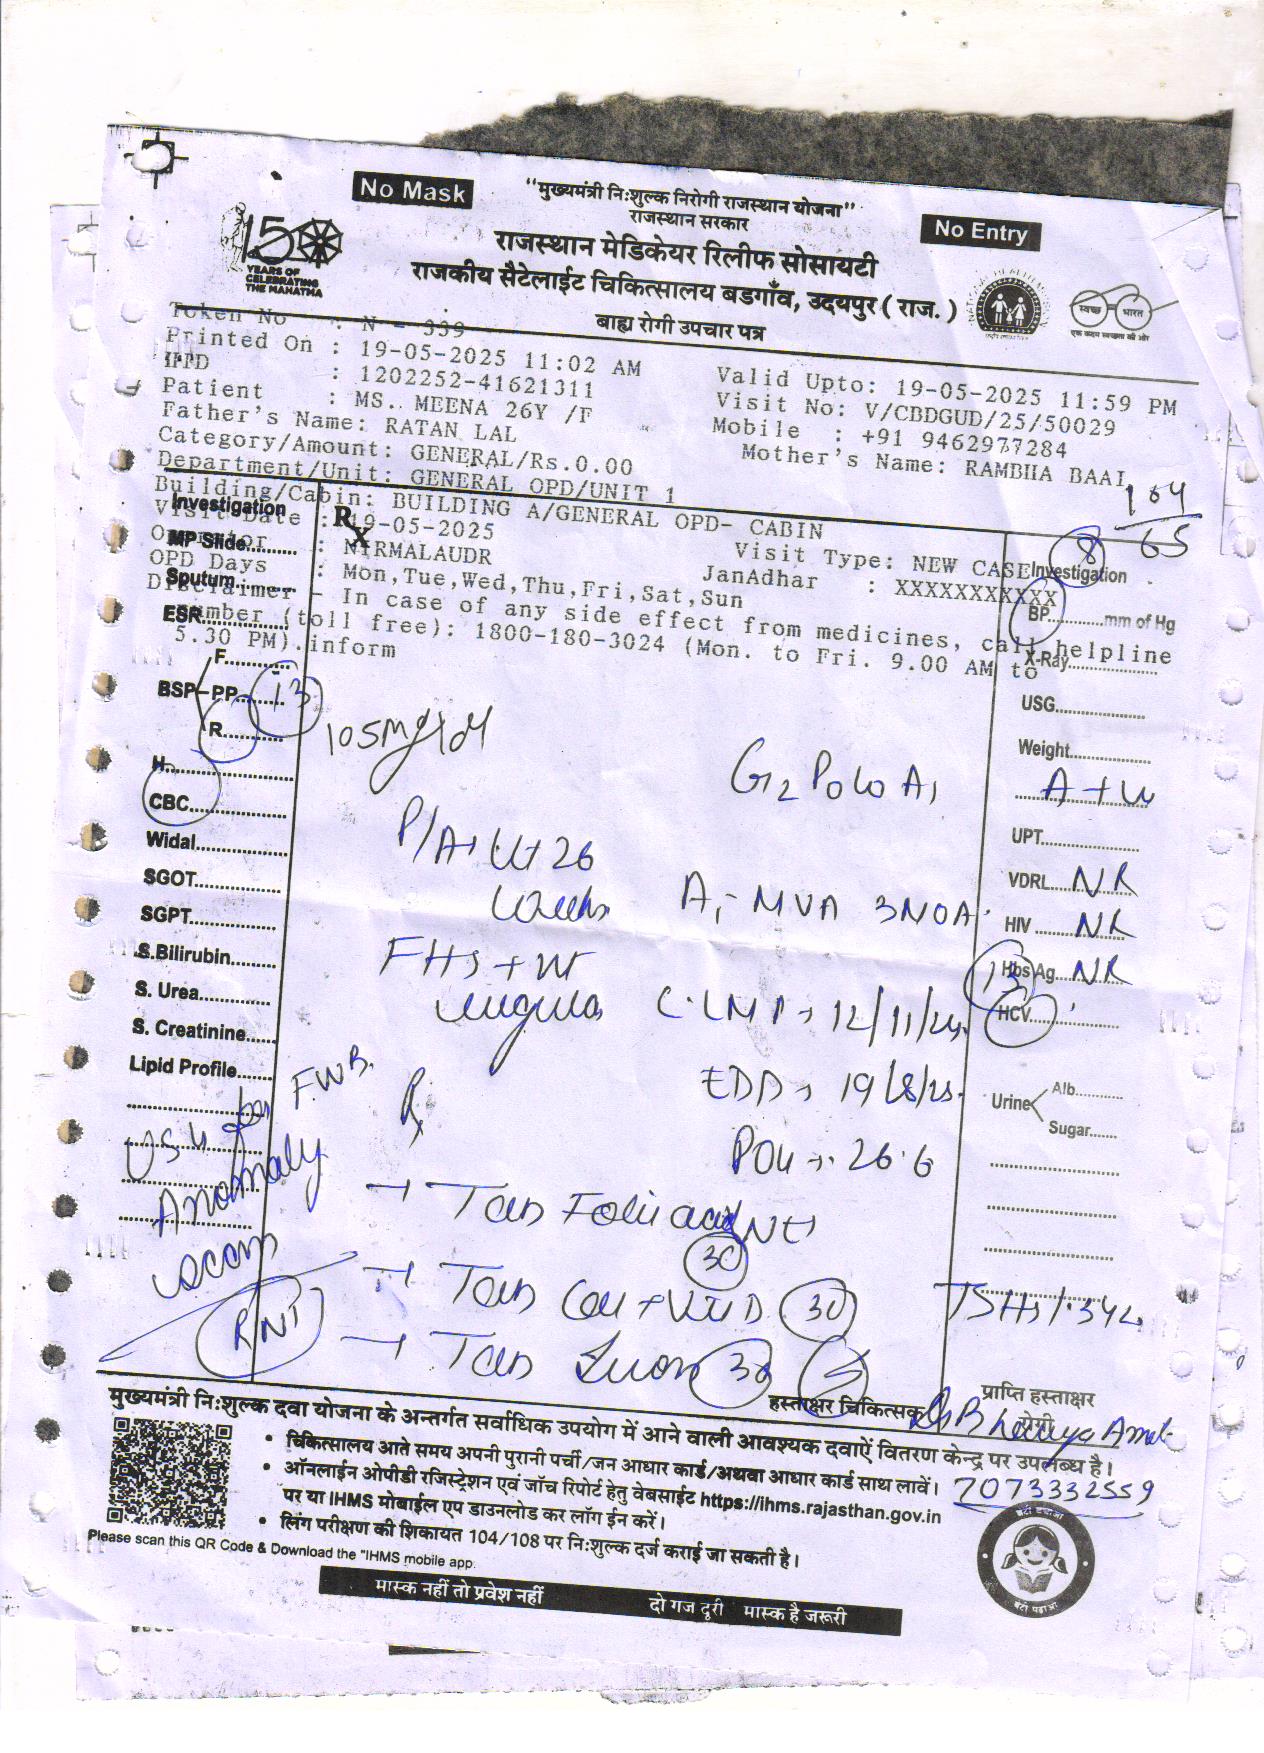 No Mask
"मुख्यमंत्री निःशुल्क निरोगी राजस्थान योजना"
राजस्थान सरकार
No Entry
150
YEARS OF
CELEBRATING
THE MAHATMA
राजस्थान मेडिकेयर रिलीफ सोसायटी
राजकीय सैटेलाईट चिकित्सालय बडगाँव, उदयपुर ( राज. )
बाह्य रोगी उपचार पत्र
स्वच्छ भारत
एक कदम स्वच्छता की ओर
Token No : N - 339
Printed On : 19-05-2025 11:02 AM
Valid Upto: 19-05-2025 11:59 PM
: 1202252-41621311
Visit No: V/CBDGUD/25/50029
Patient : MS. MEENA 26Y /F
Mobile : +91 9462977284
Father's Name: RATAN LAL
Mother's Name: RAMBHA BAAI
Category/Amount: GENERAL/Rs.0.00
Department/Unit: GENERAL OPD/UNIT 1
Building/Cabin: BUILDING A/GENERAL OPD- CABIN
Visit Date : 19-05-2025
Visit Type: NEW CASE
Operator : NIRMALAUDR
JanAdhar : XXXXXXXXXXX
OPD Days : Mon,Tue,Wed,Thu,Fri,Sat,Sun
Disclaimer - In case of any side effect from medicines, call helpline
number (toll free): 1800-180-3024 (Mon. to Fri. 9.00 AM to
5.30 PM).inform
104
65
8
Investigation
Rx
MP Slide..........
Sputum..........
ESR..........
BSP
F..........
PP..........
13
R..........
105mg/dl
H..........
CBC..........
Widal..........
SGOT..........
SGPT..........
S.Bilirubin.........
S. Urea..........
S. Creatinine......
Lipid Profile.......
Investigation
BP..........mm of Hg
X-Ray..........
USG..........
Weight..........
UPT..........
VDRL NR
HIV NR
Hbs Ag NR
13
HCV..........
Urine
Alb..........
Sugar.......
G2 P0 L0 A1
P/A → Ut 26
weeks
A1 - MVA 3 MOA
FHS +nt
regular
LMP → 12/11/24
EDD → 19/8/25
POG → 26.6
FWB
USG for
Anomaly
scan
RNT
Rx
→ Tab Folic acid
30
→ Tab Cal + Vit D 30
→ Tab Iron 30
TSH → 1.342
हस्ताक्षर चिकित्सक
प्राप्ति हस्ताक्षर
रोगी
7073332559
मुख्यमंत्री निःशुल्क दवा योजना के अन्तर्गत सर्वाधिक उपयोग में आने वाली आवश्यक दवाऐं वितरण केन्द्र पर उपलब्ध है।
• चिकित्सालय आते समय अपनी पुरानी पर्ची/जन आधार कार्ड/अथवा आधार कार्ड साथ लावें।
• ऑनलाईन ओपीडी रजिस्ट्रेशन एवं जाँच रिपोर्ट हेतु वेबसाईट https://ihms.rajasthan.gov.in
पर या IHMS मोबाईल एप डाउनलोड कर लॉग ईन करें।
• लिंग परीक्षण की शिकायत 104/108 पर निःशुल्क दर्ज कराई जा सकती है।
Please scan this QR Code & Download the "IHMS mobile app.
मास्क नहीं तो प्रवेश नहीं दो गज दूरी मास्क है जरूरी
बेटी बचाओ
बेटी पढ़ाओ